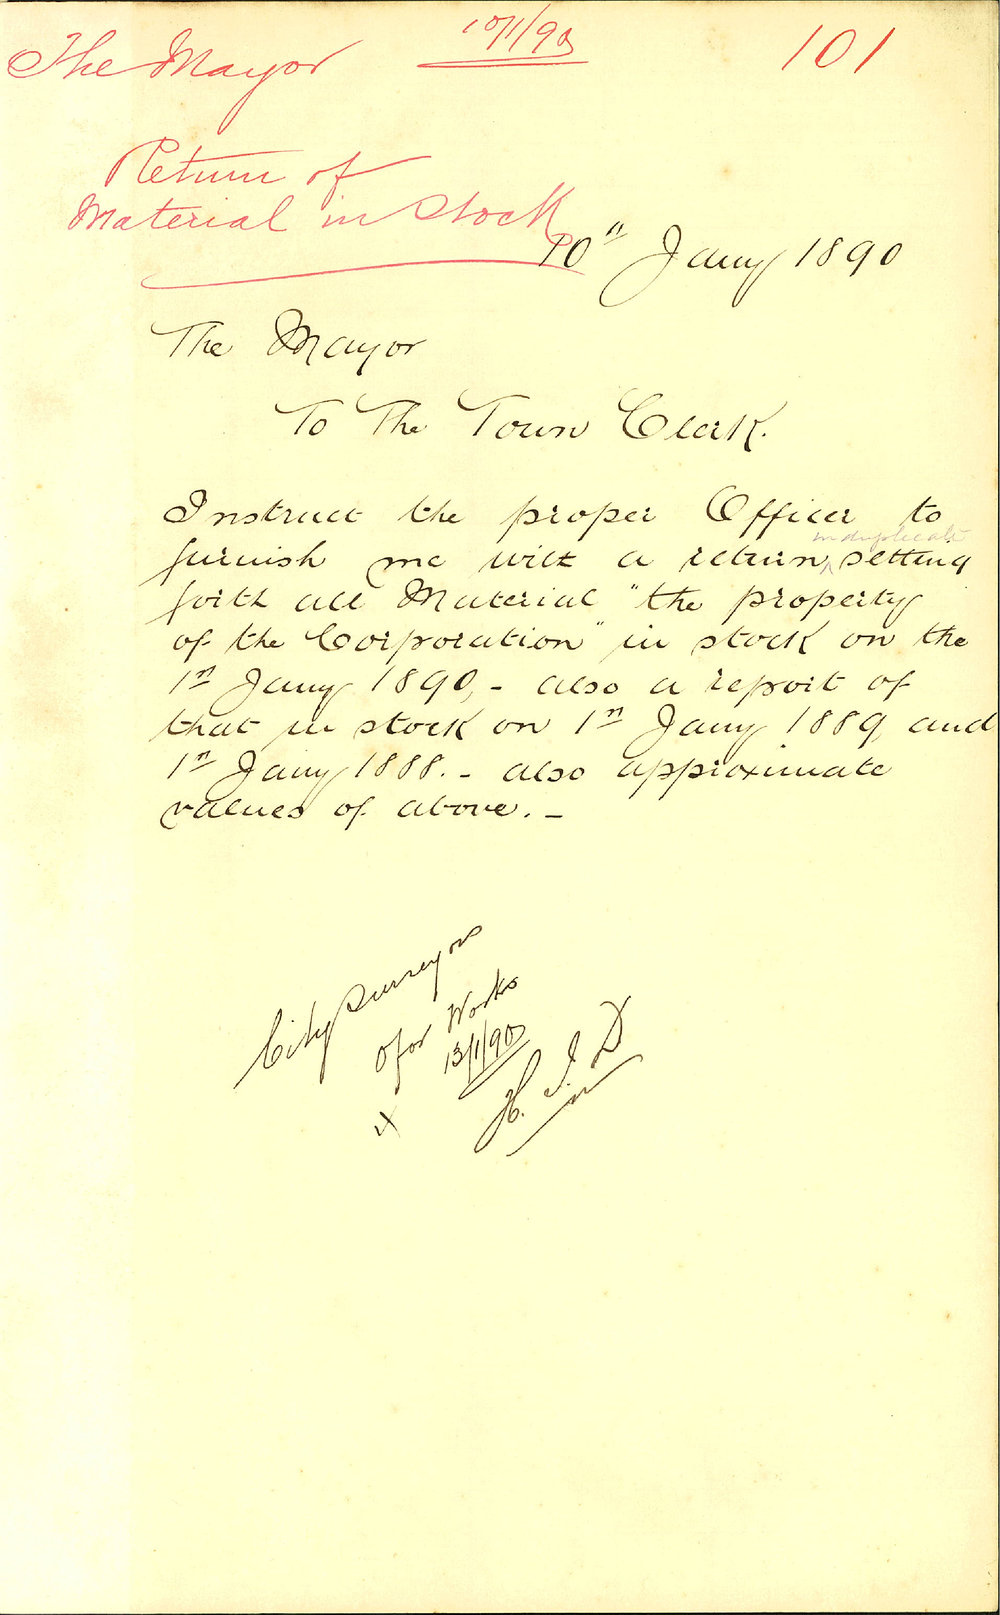 The Mayor
10/1/90
101
Return of
Material in Stock
10th Jany 1890
The Mayor
To The Town Clerk.
Instruct the proper Officer to
in duplicate
furnish me with a return setting
forth all Material "the property
of the Corporation" in stock on the
1st Jany 1890, - also a report of
that in stock on 1st Jany 1889, and
1st Jany 1888. - also approximate
values of above. -
City Surveyor
Works
13/1/90
H. J. D